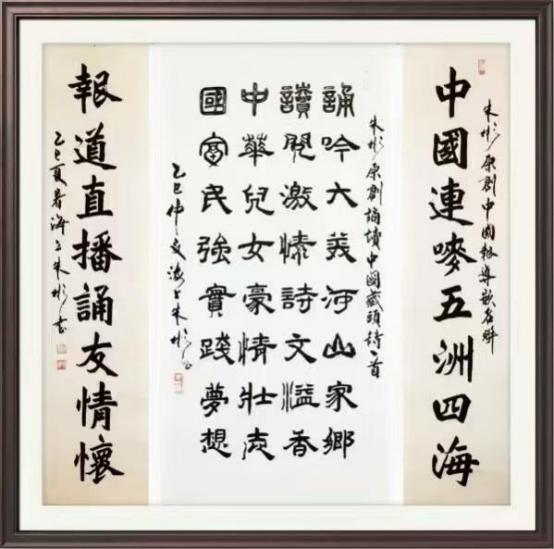 朱彬原創中國報導嵌名聯
中國連嘜五洲四海
朱彬原創誦讀中國藏頭詩一首
誦吟大美河山家鄉
讀閱激情詩文溢香
中華兒女豪情壯志
國富民強實踐夢想
乙巳仲夏海上朱彬書
報道直播誦友情懷
乙巳夏海上朱彬書